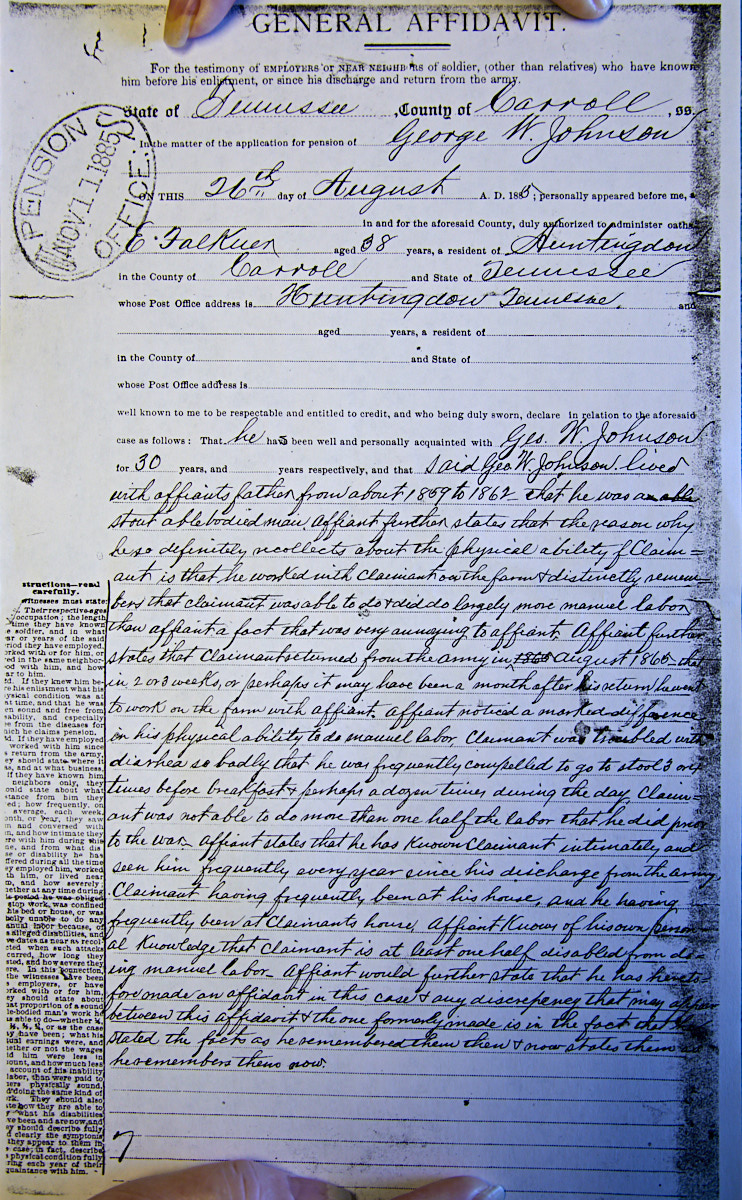 GENERAL AFFIDAVIT.
For the testimony of EMPLOYERS or NEAR NEIGHBORS of soldier, (other than relatives) who have known
him before his enlistment, or since his discharge and return from the army.
State of Tennessee, County of Carroll, ss.
In the matter of the application for pension of George W. Johnson
PENSION OFFICE U.S. NOV 11 1885
ON THIS 26th day of August A. D. 1885; personally appeared before me, a
in and for the aforesaid County, duly authorized to administer oaths
E. Falkner aged 38 years, a resident of Huntingdon
in the County of Carroll and State of Tennessee
whose Post Office address is Huntingdon Tennessee. and
aged years, a resident of
in the County of and State of
whose Post Office address is
well known to me to be respectable and entitled to credit, and who being duly sworn, declare in relation to the aforesaid
case as follows: That he has been well and personally acquainted with Geo. W. Johnson
for 30 years, and years respectively, and that said Geo. W. Johnson lived
with affiants father from about 1859 to 1862 that he was an able
stout ablebodied man Affiant further states that the reason why
he so definitely recollects about the physical ability of Claim=
ant is that he worked with claimant on the farm & distinctly remem=
bers that claimant was able to do & did do largely more manuel labor
than affiant a fact that was very annoying to affiant. Affiant further
states that Claimant returned from the army in 1865 August 1865 that
in 2 or 3 weeks, or perhaps it may have been a month after his return he went
to work on the farm with affiant. Affiant noticed a marked difference
in his physical ability to do manuel labor Claimant was troubled with
diarrhea so badly that he was frequently compelled to go to stool 3 or
times before breakfast & perhaps a dozen times during the day, Claim=
ant was not able to do more than one half the labor that he did prior
to the war. Affiant states that he has known Claimant intimately and
seen him frequently every year since his discharge from the army
Claimant having frequently been at his house, and he having
frequently been at Claimants house, Affiant knows of his own person
al knowledge that claimant is at least one half disabled from do
ing manuel labor. Affiant would further state that he has hereto
fore made an affidavit in this case & any discrepency that may
between this affidavit & the one formerly made is in the fact that he
stated the facts as he remembered them then & now states them as
he remembers them now.
structions—read
carefully.
witnesses must state:
Their respective ages
occupation; the length
time they have known
e soldier, and in what
ar or years of the said
riod they have employed,
orked with or for him, or
ed in the same neighbor
od with him, and how
ar to him.
d. If they knew him be-
re his enlistment what his
ysical condition was at
at time, and that he was
en sound and free from
sability, and especially
e from the diseases for
ich he claims pension.
d. If they have employed
worked with him since
s return from the army,
ey should state where it
as, and at what business.
If they have known him
neighbors only, they
ould state about what
stance from him they
ed; how frequently, on
average, each week,
onth, or year, they saw
m and conversed with
m, and how intimate they
re with him during this
me, and from what dis
se or disability he has
ffered during all the time
ey employed him, worked
th him, or lived near
m, and how severely
ether at any time during
is period he was obliged
stop work, was confined
his bed or house, or was
olly unable to do any
anual labor because, of
s alleged disabilities, and
ve dates as near as recol
sted when such attacks
curred, how long they
sted, and how severe they
ere. In this connection,
the witnesses have been
s employers, or have
orked with or for him,
ey should state about
at proportion of a sound
le-bodied man's work he
as able to do—whether ¼,
½, ¾, or as the case
y have been; what his
tual earnings were, and
ether or not the wages
id him were less in
ount, and how much less
account of his inability
labor, than were paid to
ers physically sound,
d doing the same kind of
rk. They should also
te how they are able to
y what his disabilities
ve been and are now, and
ey should describe fully
d clearly the symptoms
they appear to them in
s case; in fact, describe
s physical condition fully
ring each year of their
quaintance with him.
7